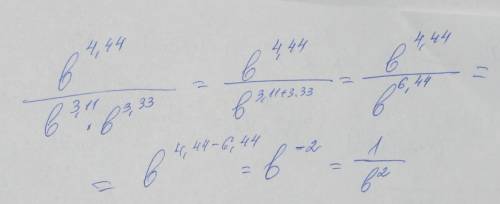 b^{4,44} / (b^{3,11} · b^{3,33}) = b^{4,44} / b^{3,11+3.33} = b^{4,44} / b^{6,44} =
= b^{4,44-6,44} = b^{-2} = 1 / b^{2}